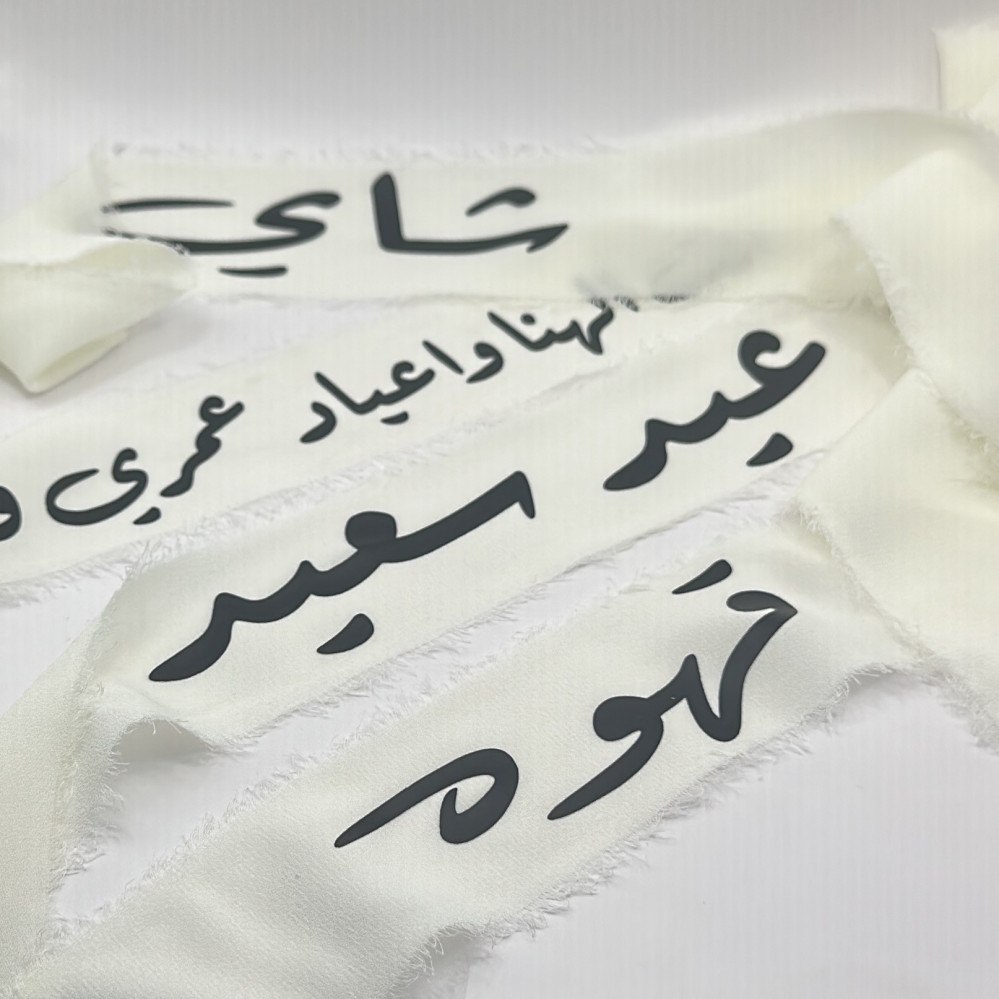 شاي
الهنا واعياد عمري و
عيد سعيد
قهوه